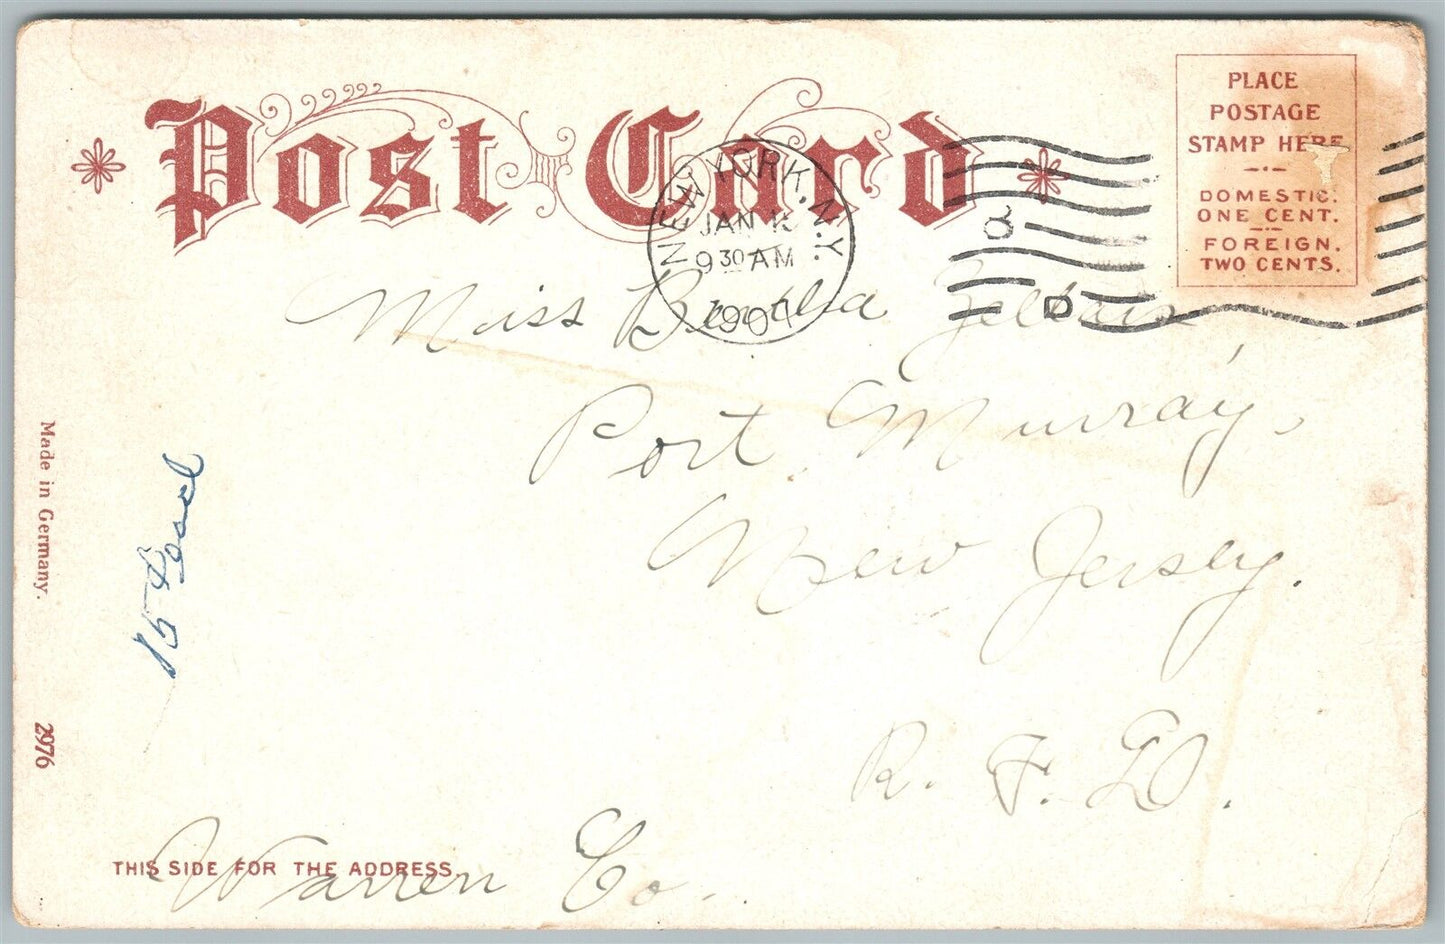 Post Card
PLACE
POSTAGE
STAMP HERE
DOMESTIC.
ONE CENT.
FOREIGN.
TWO CENTS.
NEW YORK, N.Y.
JAN
9 30 AM
1907
8
D
Miss Bertha
Port Murray,
New Jersey.
R. F. D.
Warren Co.
THIS SIDE FOR THE ADDRESS.
Made in Germany.
2976
15